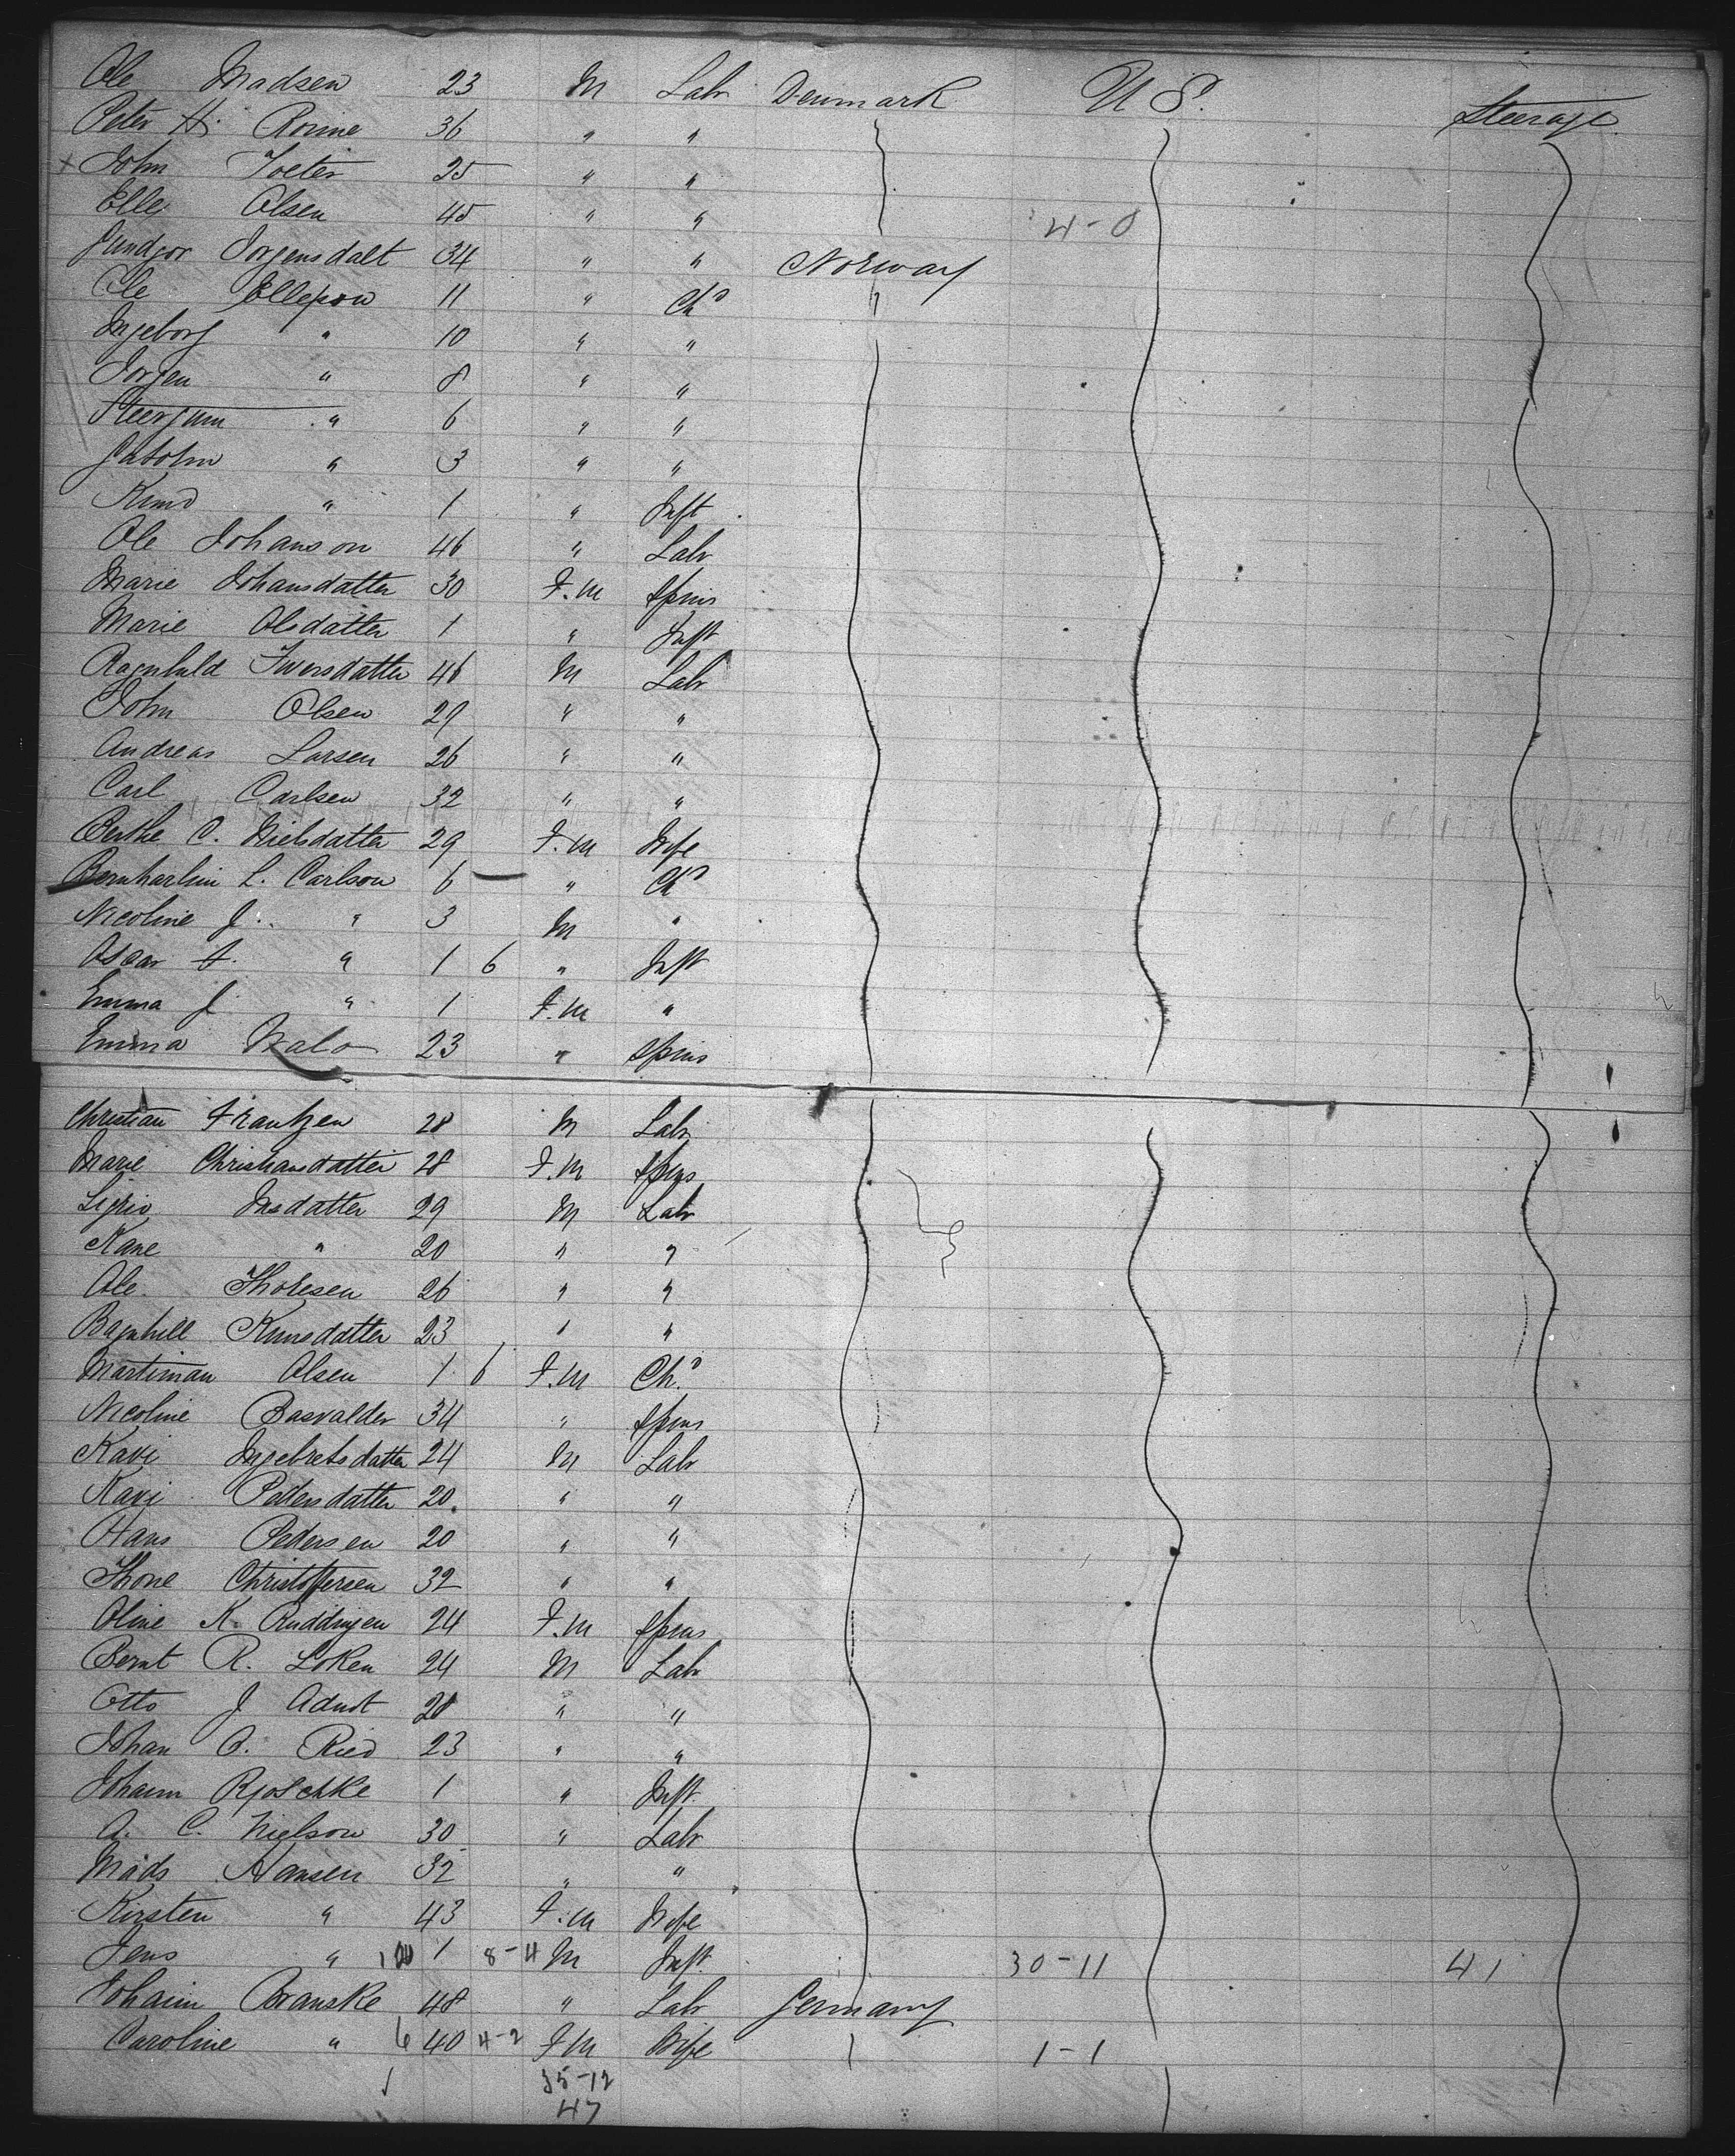 Ole Madsen 23 M Labr Denmark U S. Steerage
Peter H. Rorine 36 " "
x John Toeter 25 " "
Elle Olsen 45 " " 4-0
Jorgensdatt 34 " " Norway
Ole Ellefson 11 " Chd "
Ingeborg " 10 " "
Jorgen " 8 " "
" 6 " "
" 3 " "
Knud " 1 " Inft
Ole Johanson 46 " Labr
Marie Johansdatter 30 F.M Spins
Marie Olsdatter 1 " Inft
Ragnhild Iversdatter 46 M Labr
John Olsen 29 " "
Andreas Larsen 26 " "
Carl Carlsen 32 " "
Berthe C. Nielsdatter 29 F.M Wife
Bernharlin L. Carlson 6 — " Chd
Nicoline J. " 3 M "
Oscar A. " 1 6 " Inft
Emma J " 1 F.M "
Emma Malo 23 " Spins
Christian Frantzen 28 M Labr
Marie Christiansdatter 28 F.M Spins
Sigrid 29 M Labr
Kane " 20 " "
Ole Thoresen 26 " "
Knusdatter 23 " "
Martiman Olsen 1 6 F.M Chd
Nicoline Basvalder 34 " Spins
Kari Ingebretsdatter 24 M Labr
Kari Pedersdatter 20 " "
Hans Pedersen 20 " "
Thone Christoffersen 32 " "
Oline K. Ruddingen 24 F.M Spins
Bernt R. Loken 24 M Labr
Otto J Adust 28 " "
Johan O. Ried 23 " "
Johann Rjoschke 1 " Inft
A. C. Nielson 30 " Labr
Mads Hansen 32 " "
Kirsten " 43 F.M Wife
Jens " 1 8-4 M Inft 30-11 41
Johann Branske 48 " Labr Germany
Caroline " 6 40 4-2 F.M Wife 1-1
35-12
47